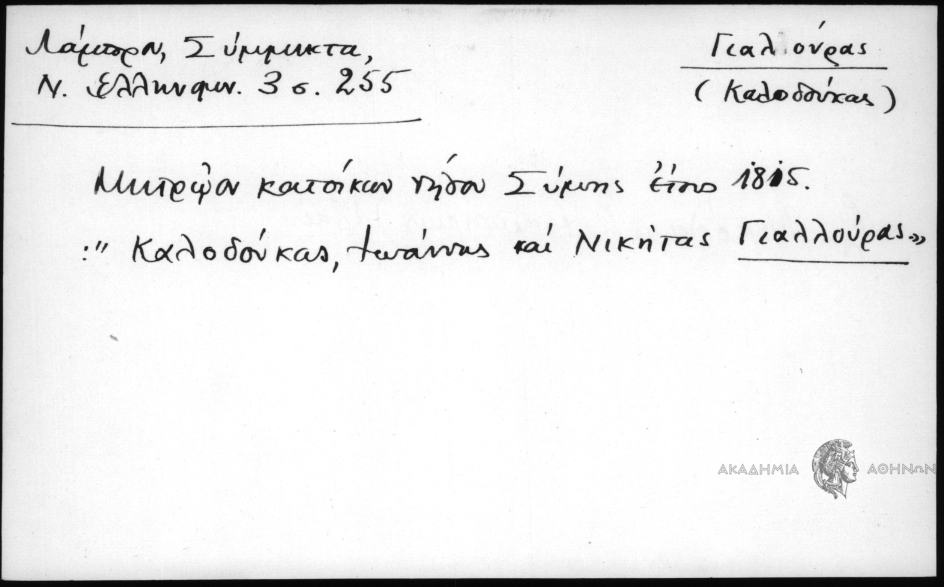 Λάμπρου, Σύμμικτα,
Ν. Ελληνομν. 3 σ. 255
Γιαλούρας
(Καλοδούκας)
Μητρῷον κατοίκων νήσου Σύμης ἔτους 1815.
:" Καλοδούκας, Ιωάννης καί Νικήτας Γιαλλούρας»
ΑΚΑΔΗΜΙΑ ΑΘΗΝΩΝ